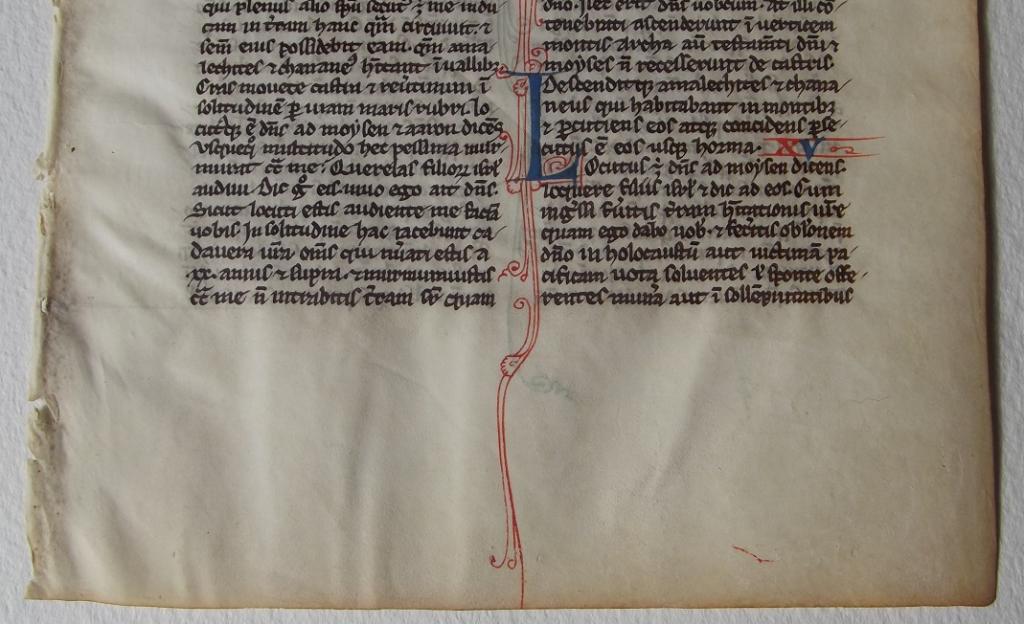 qui plenus alio spu secut᷒ ē me indu
cam in t̄ram hanc qm̄ circuivit. ⁊
sem̄ eius possidebit eam. qm̄ ama
lechites ⁊ chanane᷒ hītant ī vallib᷒
Cras movete castra ⁊ revtimini ī
solitudinē ꝑ viam maris rubri. lo
cutꝰqꝫ ē dn̄s ad moysen ⁊ aaron dicēs
Vsquequo multitudo hec pessima mur
murat cͣ me? Querelas filiorꝫ isrl̄
audivi. Dic gͦ eis. vivo ego ait dn̄s.
Sicut locuti estis audiente me faciā
vobis In solitudine hac iacebunt ca
davera vr̄a. om̄s qui nūati estis a
xx. annis ⁊ supra. ⁊ murmurastis
cͣ me n̄ intrabitis t̄ram suꝑ quam
dn̄o. Hec erit dn̄s vobcum. At illi cō
tenebrati ascenderunt ī verticem
montis Archa au᷒ testam̄ti dn̄i ⁊
moyses n̄ recesserunt de castris.
Descenditqꝫ amalechites ⁊ chana
neus qui habitabant in montibꝫ
⁊ ꝑcutiens eos atqꝫ concidens ꝑse
cutus ē eos usqꝫ horma. XV
Locutus ē dn̄s ad moysen dicens.
loquere filiis isrl̄ ⁊ dic ad eos. Cum
ing̃ssi fu̾itis t̄ram hītationis vr̄e
quam ego dabo vob᷒. ⁊ fec̾itis obl̄onem
dn̄o in holocaustū aut victimā pa
cificam vota solventes ł sponte offe
rentes munera aut ī sollēpnitatibus